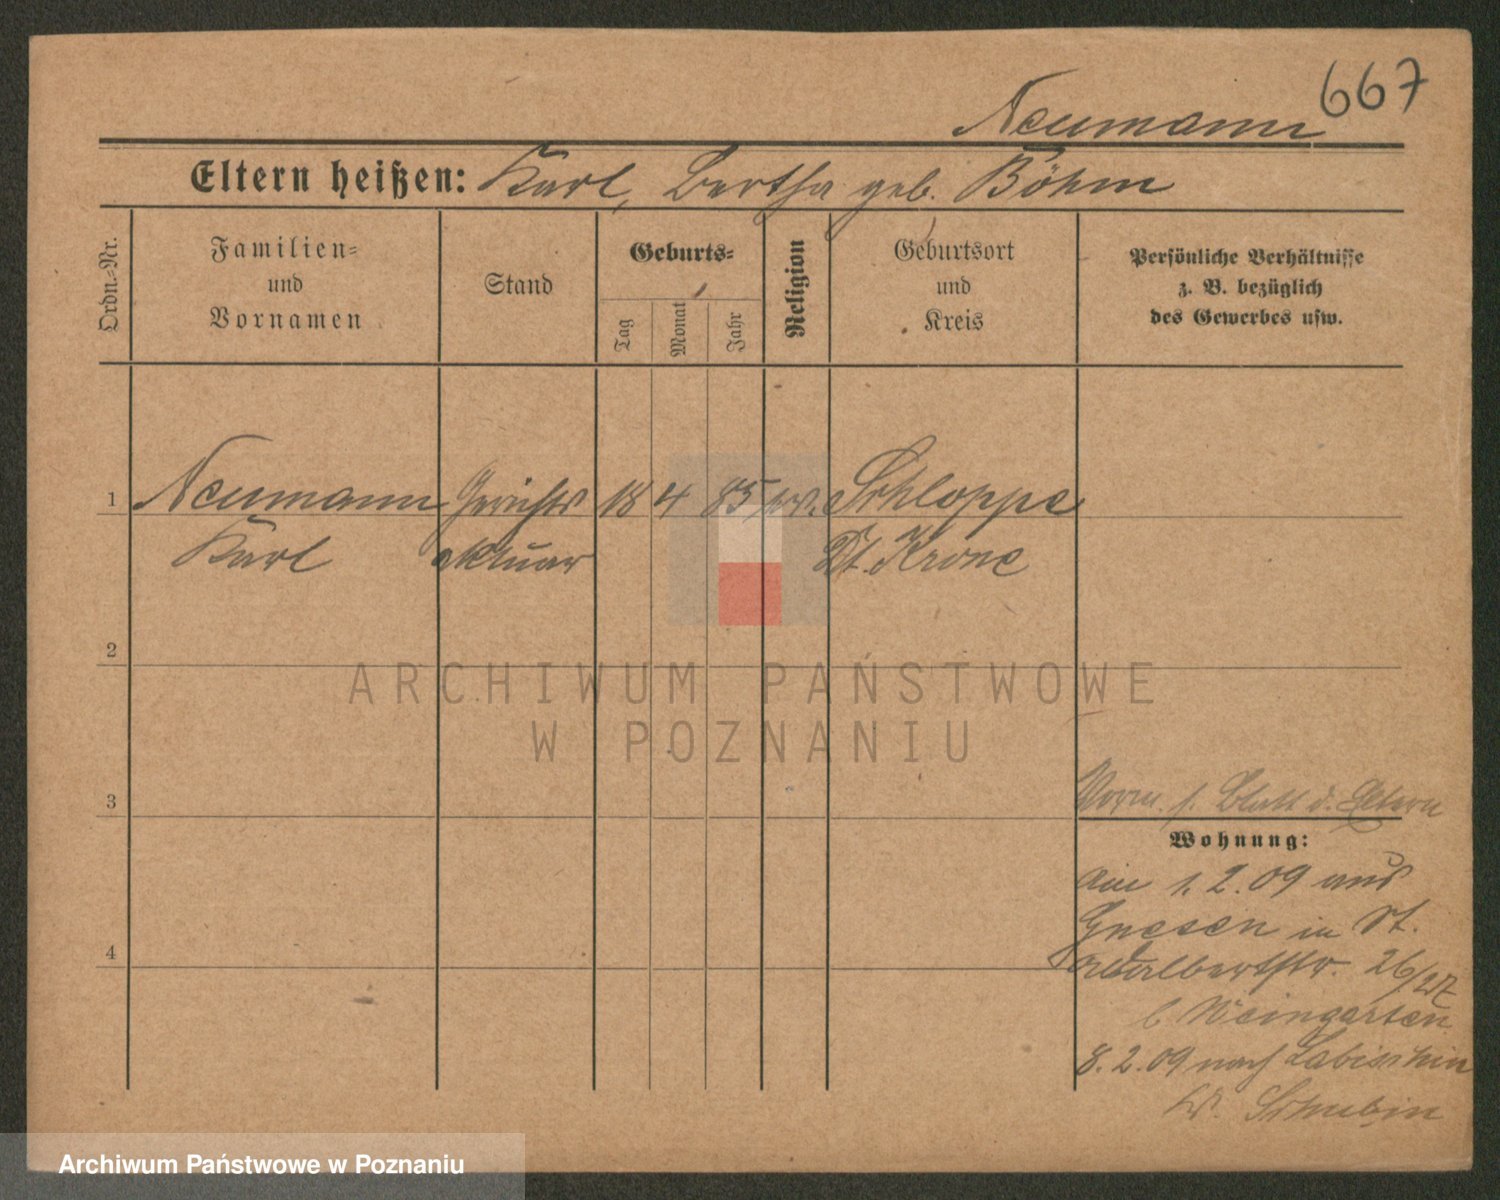 667
Neumann
Eltern heißen: Karl, Bertha geb. Böhm
Ordn.-Nr.
Familien-
und
Vornamen
Stand
Geburts-
Tag
Monat
Jahr
Religion
Geburtsort
und
Kreis
Persönliche Verhältnisse
z. B. bezüglich
des Gewerbes usw.
1 Neumann Gerichts 18 4 85 ev. Schloppe
Karl aktuar Dt. Krone
2
3
4
Vorm. s. Blatt d. Eltern
Wohnung:
Am 1.2.09 aus
Gnesen in St.
Adalbertstr. 26/27
b. Weingarten
8.2.09 nach Labischin
Kr. Schubin
ARCHIWUM PAŃSTWOWE
W POZNANIU
Archiwum Państwowe w Poznaniu